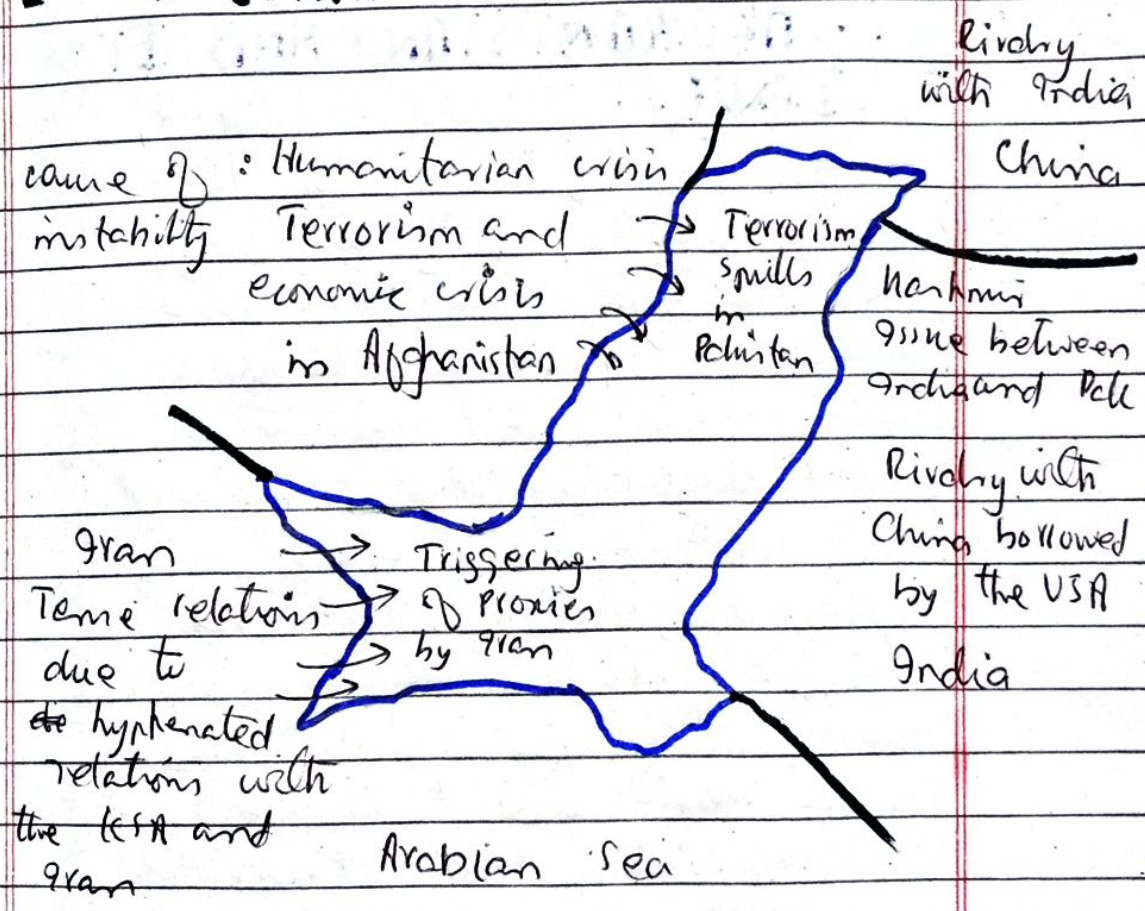 Rivalry
with India
China
cause of : Humanitarian crisis
instability Terrorism and
economic crisis
in Afghanistan
Terrorism
spills
in
Pakistan
Kashmir
issue between
India and Pak
Rivalry with
China borrowed
by the USA
India
Iran
Tense relations
due to
hyphenated
relations with
the KSA and
Iran
Triggering
of proxies
by Iran
Arabian Sea